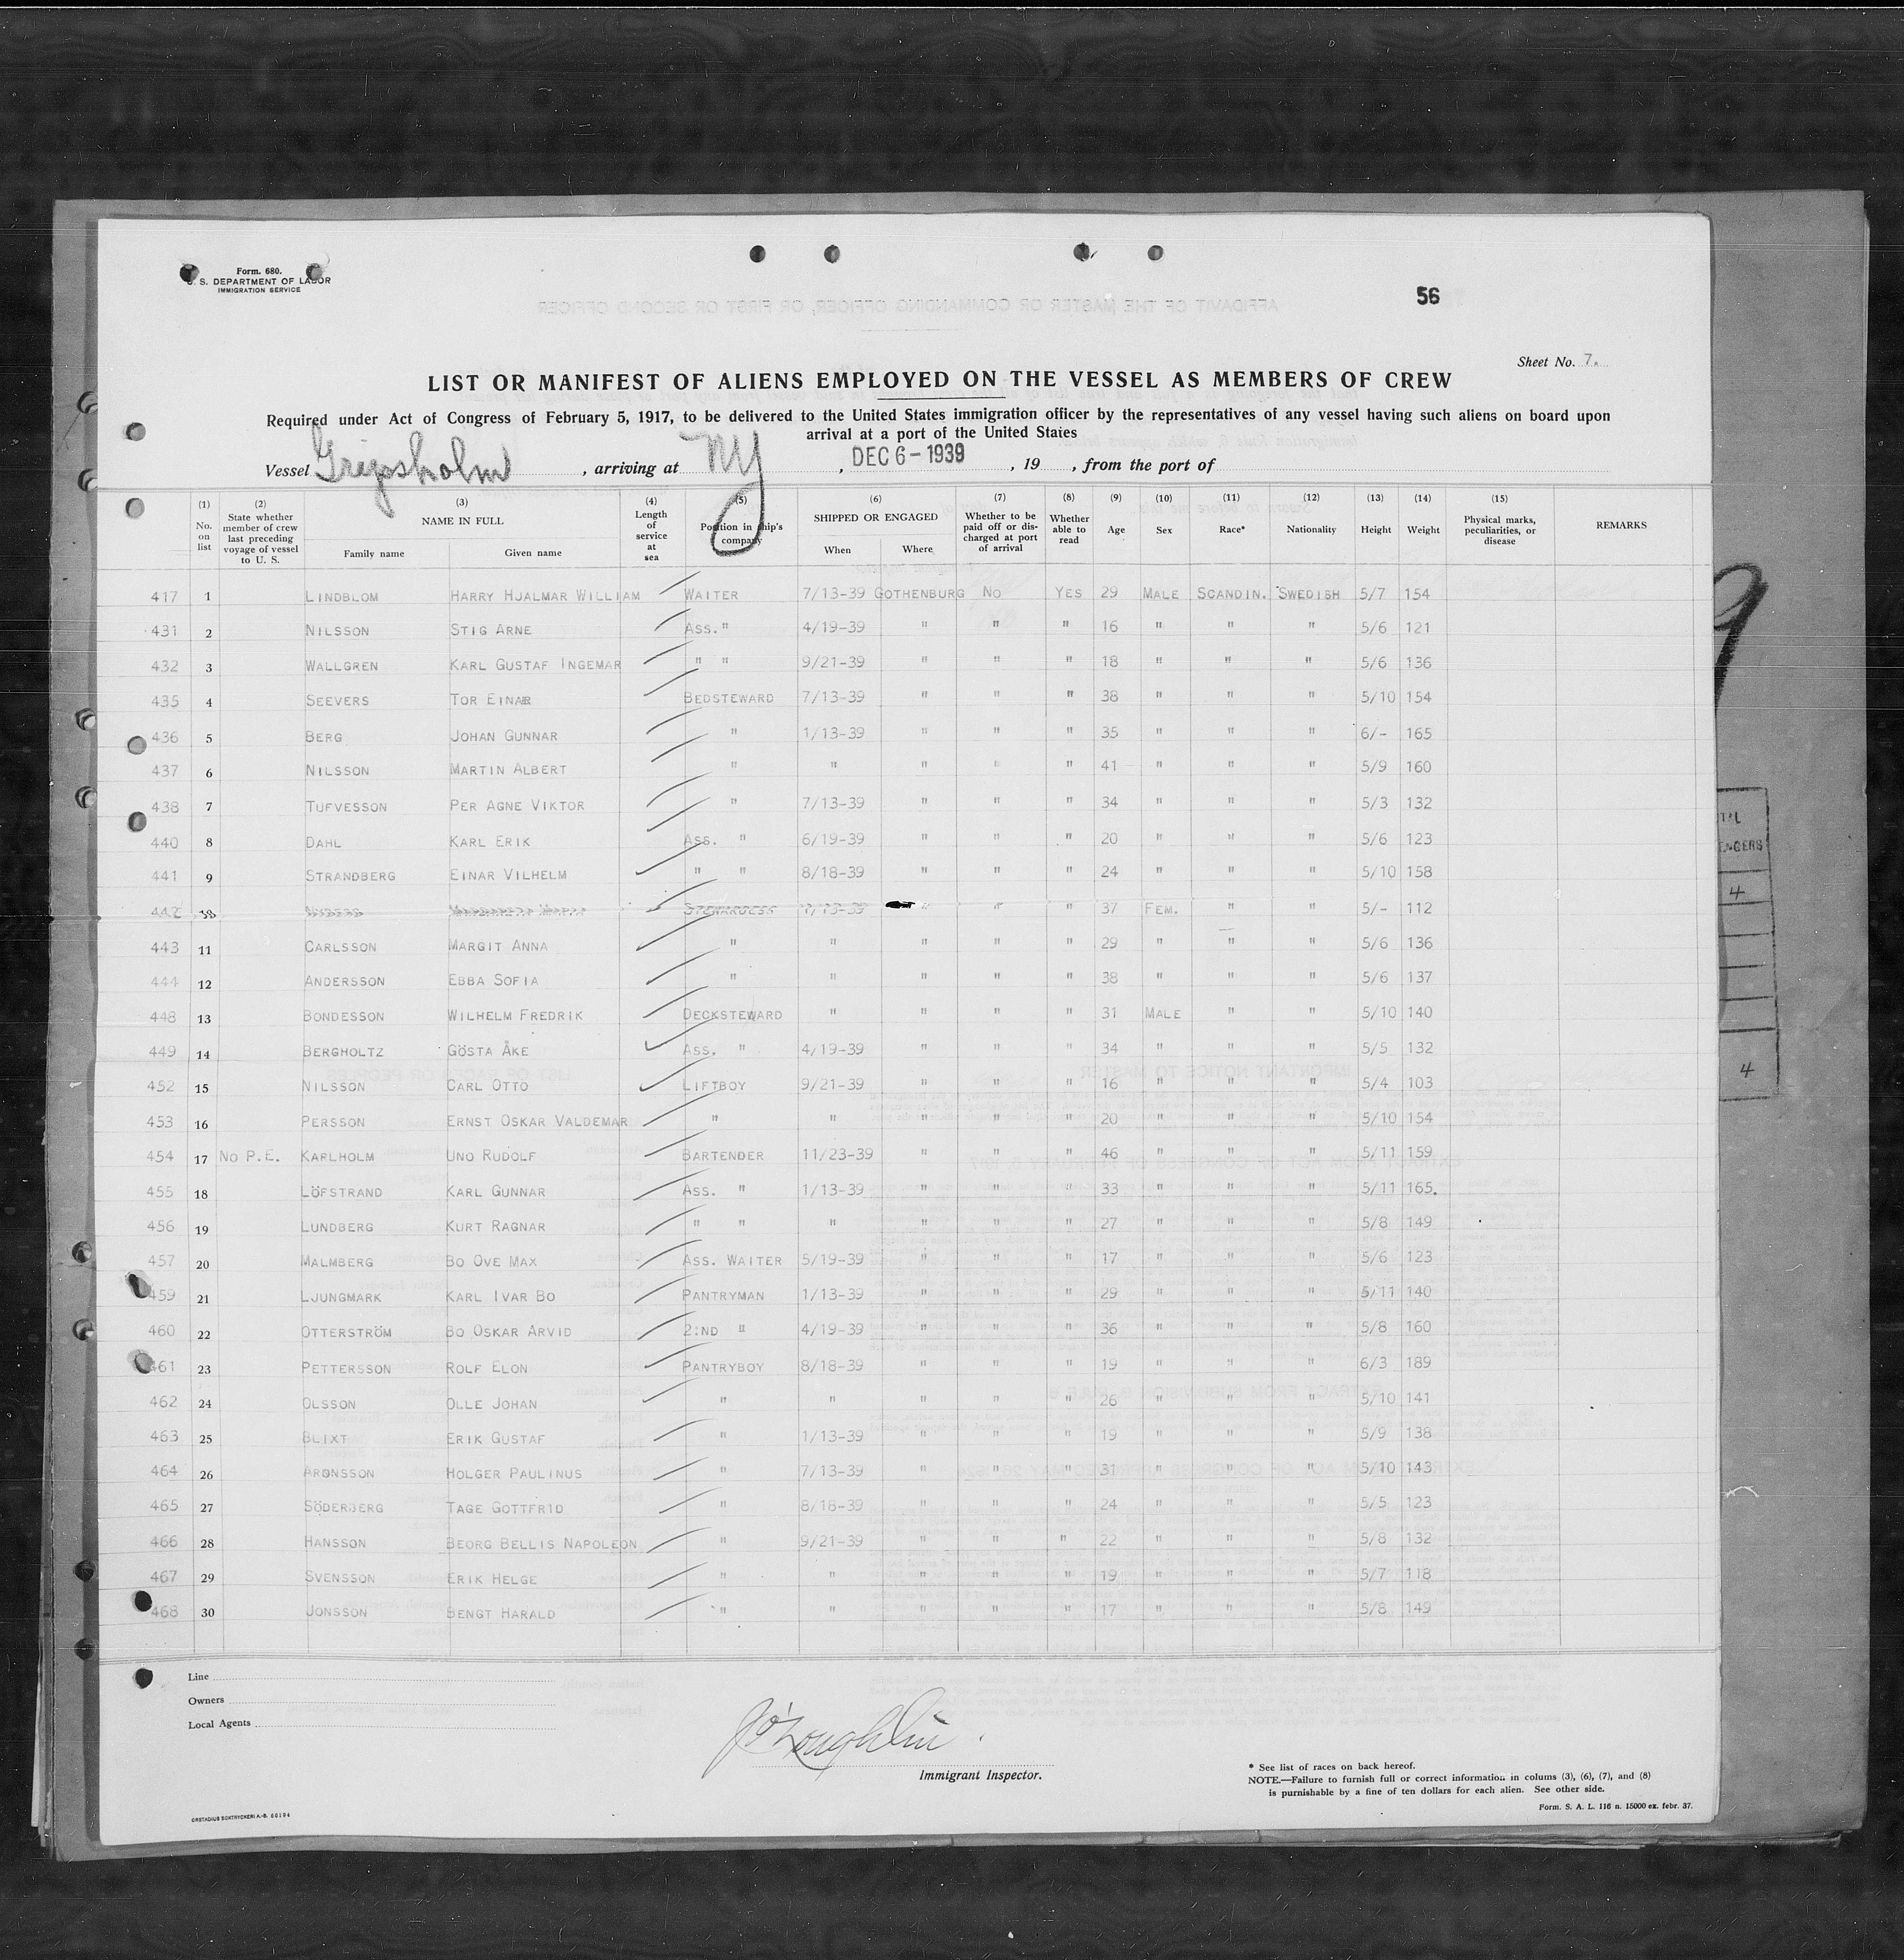 Form. 680.
U. S. DEPARTMENT OF LABOR
IMMIGRATION SERVICE
56
Sheet No. 7.
LIST OR MANIFEST OF ALIENS EMPLOYED ON THE VESSEL AS MEMBERS OF CREW
Required under Act of Congress of February 5, 1917, to be delivered to the United States immigration officer by the representatives of any vessel having such aliens on board upon
arrival at a port of the United States
Vessel Gripsholm, arriving at NY, DEC 6 - 1939, 19 , from the port of
(1) No. on list (2) State whether member of crew last preceding voyage of vessel to U. S. (3) NAME IN FULL Family name Given name (4) Length of service at sea (5) Position in ship's company (6) SHIPPED OR ENGAGED When Where (7) Whether to be paid off or discharged at port of arrival (8) Whether able to read (9) Age (10) Sex (11) Race* (12) Nationality (13) Height (14) Weight (15) Physical marks, peculiarities, or disease REMARKS
417 1 LINDBLOM HARRY HJALMAR WILLIAM WAITER 7/13-39 GOTHENBURG NO YES 29 MALE SCANDIN. SWEDISH 5/7 154
431 2 NILSSON STIG ARNE ASS. " 4/19-39 " " " 16 " " " 5/6 121
432 3 WALLGREN KARL GUSTAF INGEMAR " " 9/21-39 " " " 18 " " " 5/6 136
435 4 SEEVERS TOR EINAR BEDSTEWARD 7/13-39 " " " 38 " " " 5/10 154
436 5 BERG JOHAN GUNNAR " 1/13-39 " " " 35 " " " 6/- 165
437 6 NILSSON MARTIN ALBERT " " " " " 41 " " " 5/9 160
438 7 TUFVESSON PER AGNE VIKTOR " 7/13-39 " " " 34 " " " 5/3 132
440 8 DAHL KARL ERIK ASS. " 6/19-39 " " " 20 " " " 5/6 123
441 9 STRANDBERG EINAR VILHELM " " 8/18-39 " " " 24 " " " 5/10 158
442 10 STEWARDESS 1/13-39 " " " 37 FEM. " " 5/- 112
443 11 CARLSSON MARGIT ANNA " " " " " 29 " " " 5/6 136
444 12 ANDERSSON EBBA SOFIA " " " " " 38 " " " 5/6 137
448 13 BONDESSON WILHELM FREDRIK DECKSTEWARD " " " " 31 MALE " " 5/10 140
449 14 BERGHOLTZ GÖSTA ÅKE ASS. " 4/19-39 " " " 34 " " " 5/5 132
452 15 NILSSON CARL OTTO LIFTBOY 9/21-39 " " " 16 " " " 5/4 103
453 16 PERSSON ERNST OSKAR VALDEMAR " " " " " 20 " " " 5/10 154
454 17 NO P.E. KARLHOLM UNO RUDOLF BARTENDER 11/23-39 " " " 46 " " " 5/11 159
455 18 LÖFSTRAND KARL GUNNAR ASS. " 1/13-39 " " " 33 " " " 5/11 165.
456 19 LUNDBERG KURT RAGNAR " " " " " " 27 " " " 5/8 149
457 20 MALMBERG BO OVE MAX ASS. WAITER 5/19-39 " " " 17 " " " 5/6 123
459 21 LJUNGMARK KARL IVAR BO PANTRYMAN 1/13-39 " " " 29 " " " 5/11 140
460 22 OTTERSTRÖM BO OSKAR ARVID 2:ND " 4/19-39 " " " 36 " " " 5/8 160
461 23 PETTERSSON ROLF ELON PANTRYBOY 8/18-39 " " " 19 " " " 6/3 189
462 24 OLSSON OLLE JOHAN " " " " " 26 " " " 5/10 141
463 25 BLIXT ERIK GUSTAF " 1/13-39 " " " 19 " " " 5/9 138
464 26 ARONSSON HOLGER PAULINUS " 7/13-39 " " " 31 " " " 5/10 143
465 27 SÖDERBERG TAGE GOTTFRID " 8/18-39 " " " 24 " " " 5/5 123
466 28 HANSSON BEORG BELLIS NAPOLEON " 9/21-39 " " " 22 " " " 5/8 132
467 29 SVENSSON ERIK HELGE " " " " " 19 " " " 5/7 118
468 30 JONSSON BENGT HARALD " " " " " 17 " " " 5/8 149
Line
Owners
Local Agents
J O'Loughlin
Immigrant Inspector.
* See list of races on back hereof.
NOTE.—Failure to furnish full or correct information in colums (3), (6), (7), and (8)
is purnishable by a fine of ten dollars for each alien. See other side.
Form. S. A. L. 116 n. 15000 ex. febr. 37.
4
4